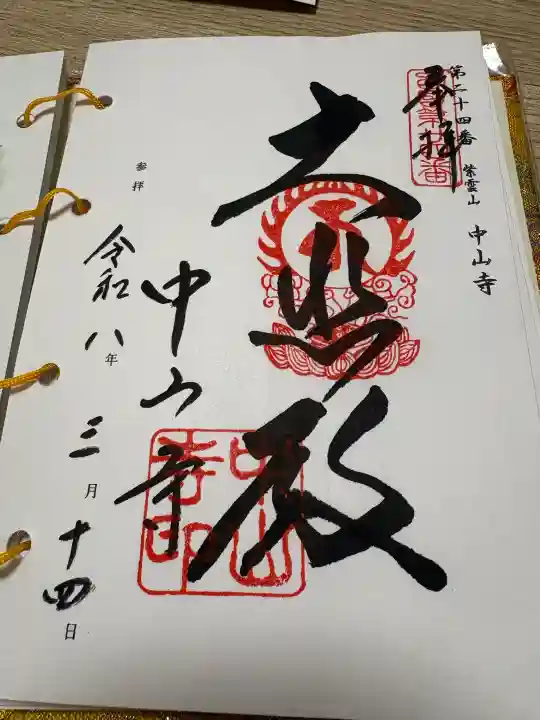 第二十四番 紫雲山 中山寺
奉拝
大悲殿
中山寺
参拝
令和八年三月十四日
中山寺印